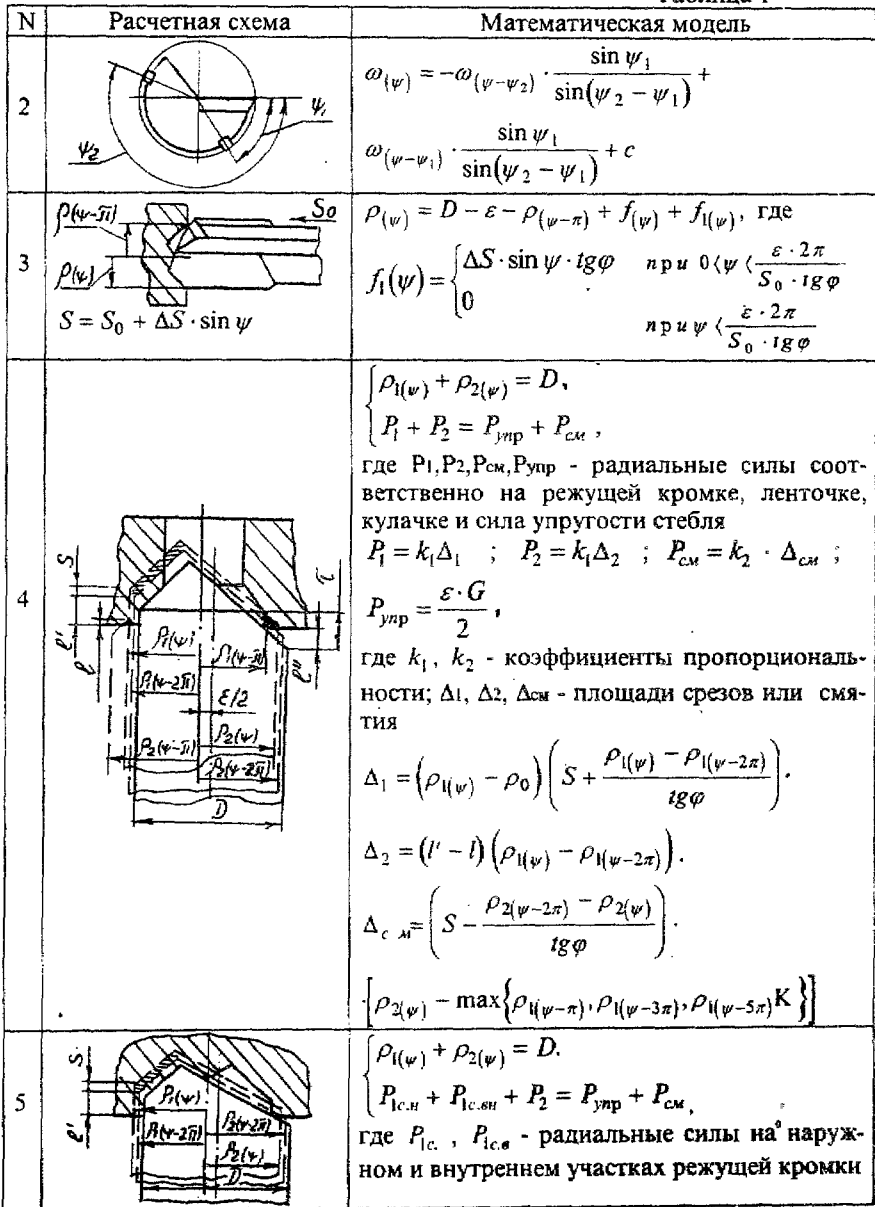 N Расчетная схема Математическая модель
2
ψ₂ ψ₁
ω_(ψ) = −ω_(ψ−ψ₂) · sin ψ₁ / sin(ψ₂ − ψ₁) +
ω_(ψ−ψ₁) · sin ψ₁ / sin(ψ₂ − ψ₁) + c
3
ρ(ψ-π) S₀
ρ(ψ)
S = S₀ + ΔS · sin ψ
ρ_(ψ) = D − ε − ρ_(ψ−π) + f_(ψ) + f_1(ψ), где
f₁(ψ) = { ΔS · sin ψ · tgφ при 0⟨ψ⟨ ε · 2π / S₀ · tgφ
0 при ψ⟨ ε · 2π / S₀ · tgφ
4
S
ℓ'
ℓ
ℓ''
ρ₁(ψ)
ρ₁(ψ-π)
ρ₁(ψ-2π)
ε/2
ρ₂(ψ)
ρ₂(ψ-π)
ρ₂(ψ-2π)
D
{ ρ_1(ψ) + ρ_2(ψ) = D,
P₁ + P₂ = P_упр + P_см ,
где P₁,P₂,Pсм,Pупр - радиальные силы соот-
ветственно на режущей кромке, ленточке,
кулачке и сила упругости стебля
P₁ = k₁Δ₁ ; P₂ = k₁Δ₂ ; P_см = k₂ · Δ_см ;
P_упр = ε · G / 2 ,
где k₁, k₂ - коэффициенты пропорциональ-
ности; Δ₁, Δ₂, Δсм - площади срезов или смя-
тия
Δ₁ = (ρ_1(ψ) − ρ₀) (S + (ρ_1(ψ) − ρ_1(ψ−2π)) / tgφ).
Δ₂ = (l' − l) (ρ_1(ψ) − ρ_1(ψ−2π)).
Δ_см = (S − (ρ_2(ψ−2π) − ρ_2(ψ)) / tgφ).
·[ρ_2(ψ) − max{ρ_1(ψ−π), ρ_1(ψ−3π), ρ_1(ψ−5π)K}]
5
S
ℓ'
ρ₁(ψ)
ρ₁(ψ-2π)
ρ₂(ψ-2π)
ρ₂(ψ)
D
{ ρ_1(ψ) + ρ_2(ψ) = D.
P_1с.н + P_1с.вн + P₂ = P_упр + P_см,
где P_1с. , P_1с.в - радиальные силы на наруж-
ном и внутреннем участках режущей кромки